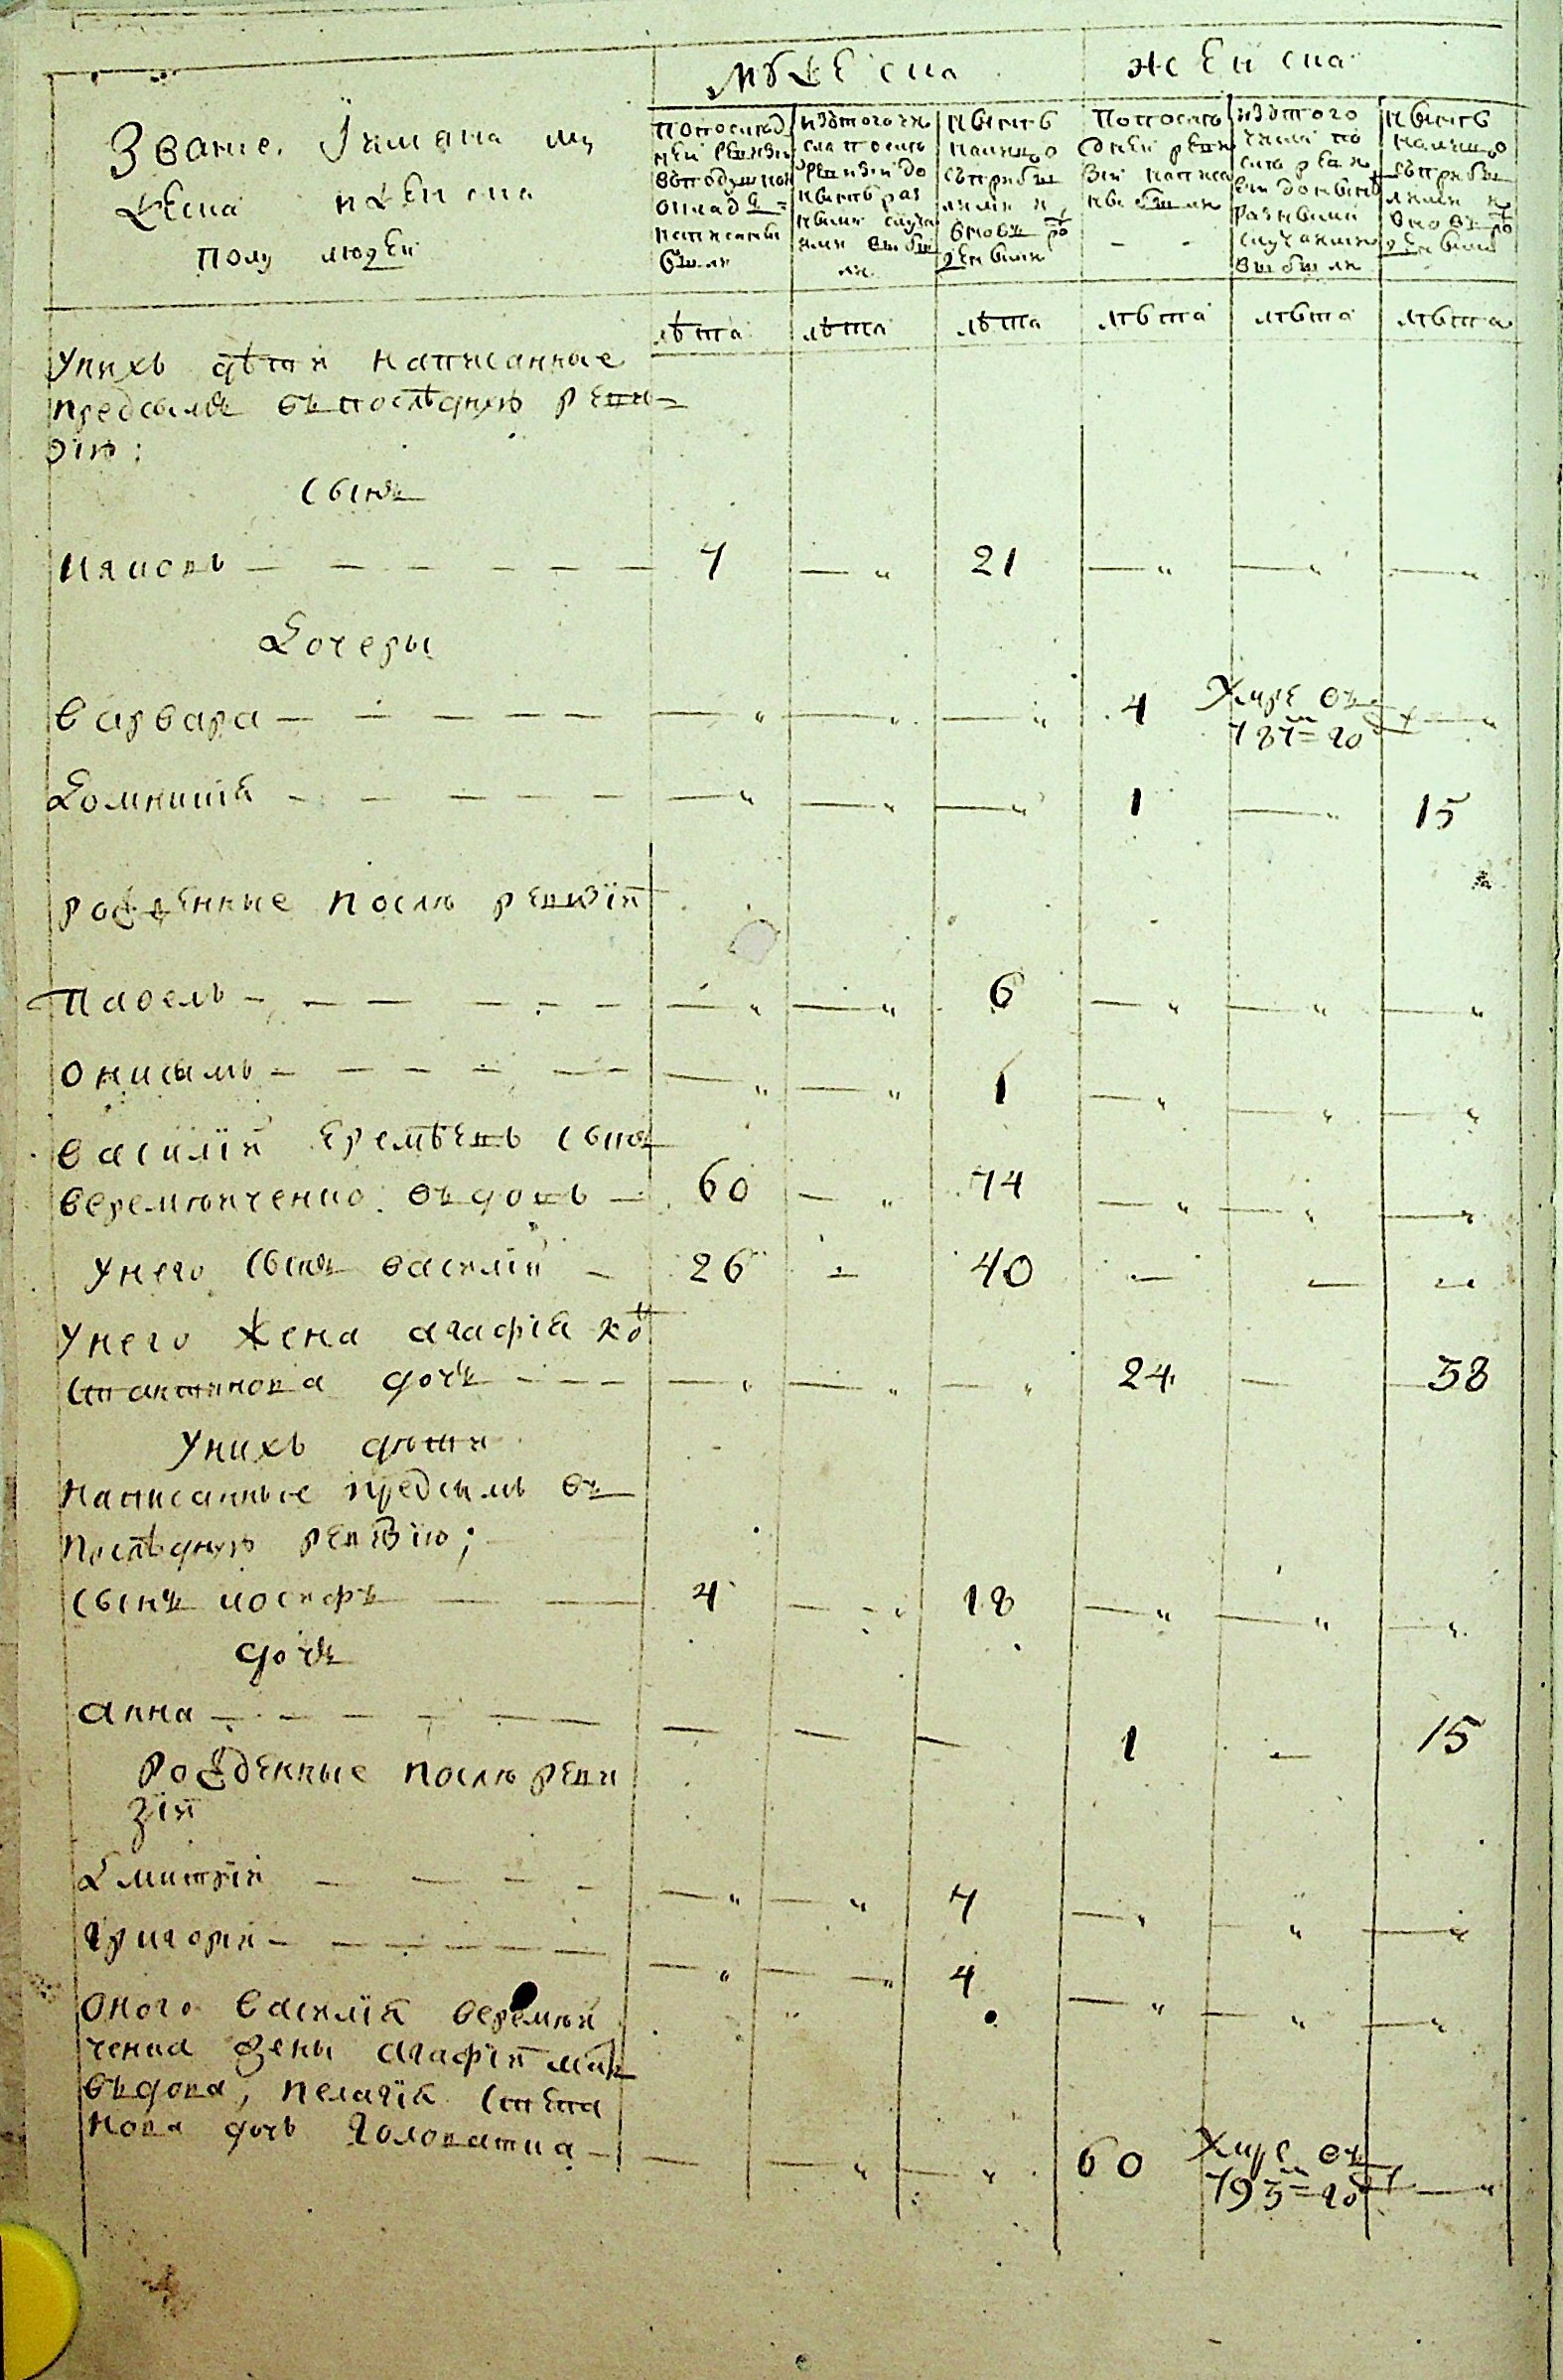 Мужеска
Женска
Звание, Iимяна му
жеска и женска
полу людей
По последней ревизiи въ подушной окладъ написаны были
Изъ того числа после ревизiи до ныне разными случаями выбыли
Ныне налицо съ прибылыми и вновь рожденными
По последней ревизiи написаны были
Изъ того числа после ревизiи до ныне разными случаями выбыли
Ныне налицо съ прибылыми и вновь рожденными
лѣта лѣта лѣта лѣта лѣта лѣта
У нихъ дѣти написанные
предсымъ въ последнюю реви=
зiю:
Сынъ
Ияковъ 7 — „ 21 — „ — „ — „
Дочеры
Варвара — „ — „ — „ 4 Умре въ 787=м году — „
Домникiя — „ — „ — „ 1 — „ 15
рожденные после ревизiи
Павелъ — „ — „ 6 — „ — „ — „
Онисымъ — „ — „ 1 — „ — „ — „
Василiй Еремѣевъ сынъ
Веремюиченко вдовъ — 60 — „ 74 — „ — „ — „
У него сынъ Василiй — 26 — 40 — — —
У него жена Агафiя Ко
стантинова дочь — „ — „ — „ 24 — 38
У нихъ дѣти
написанные предсымъ въ
последнюю ревизiю;
Сынъ Иосифъ 4 — „ 18 — „ — „ — „
дочь
Анна — — — 1 — 15
рожденные после реви
зiи
Дмитрiй — „ — „ 7 — „ „ — „
Григорiй — „ — „ 4 — „ — „ — „
Оного Василiя Веремюи
ченка жены Агафiи мать
вдова, Пелагiя Степа
нова дочь Головатиа — — „ — „ 60 Умре въ 795=м году — „